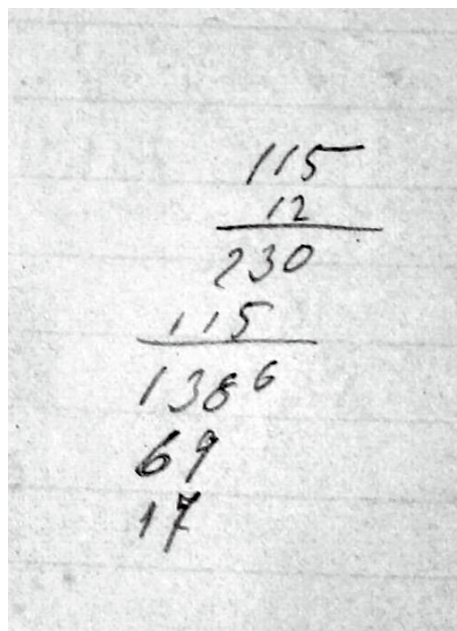 115
12
230
115
1386
69
17